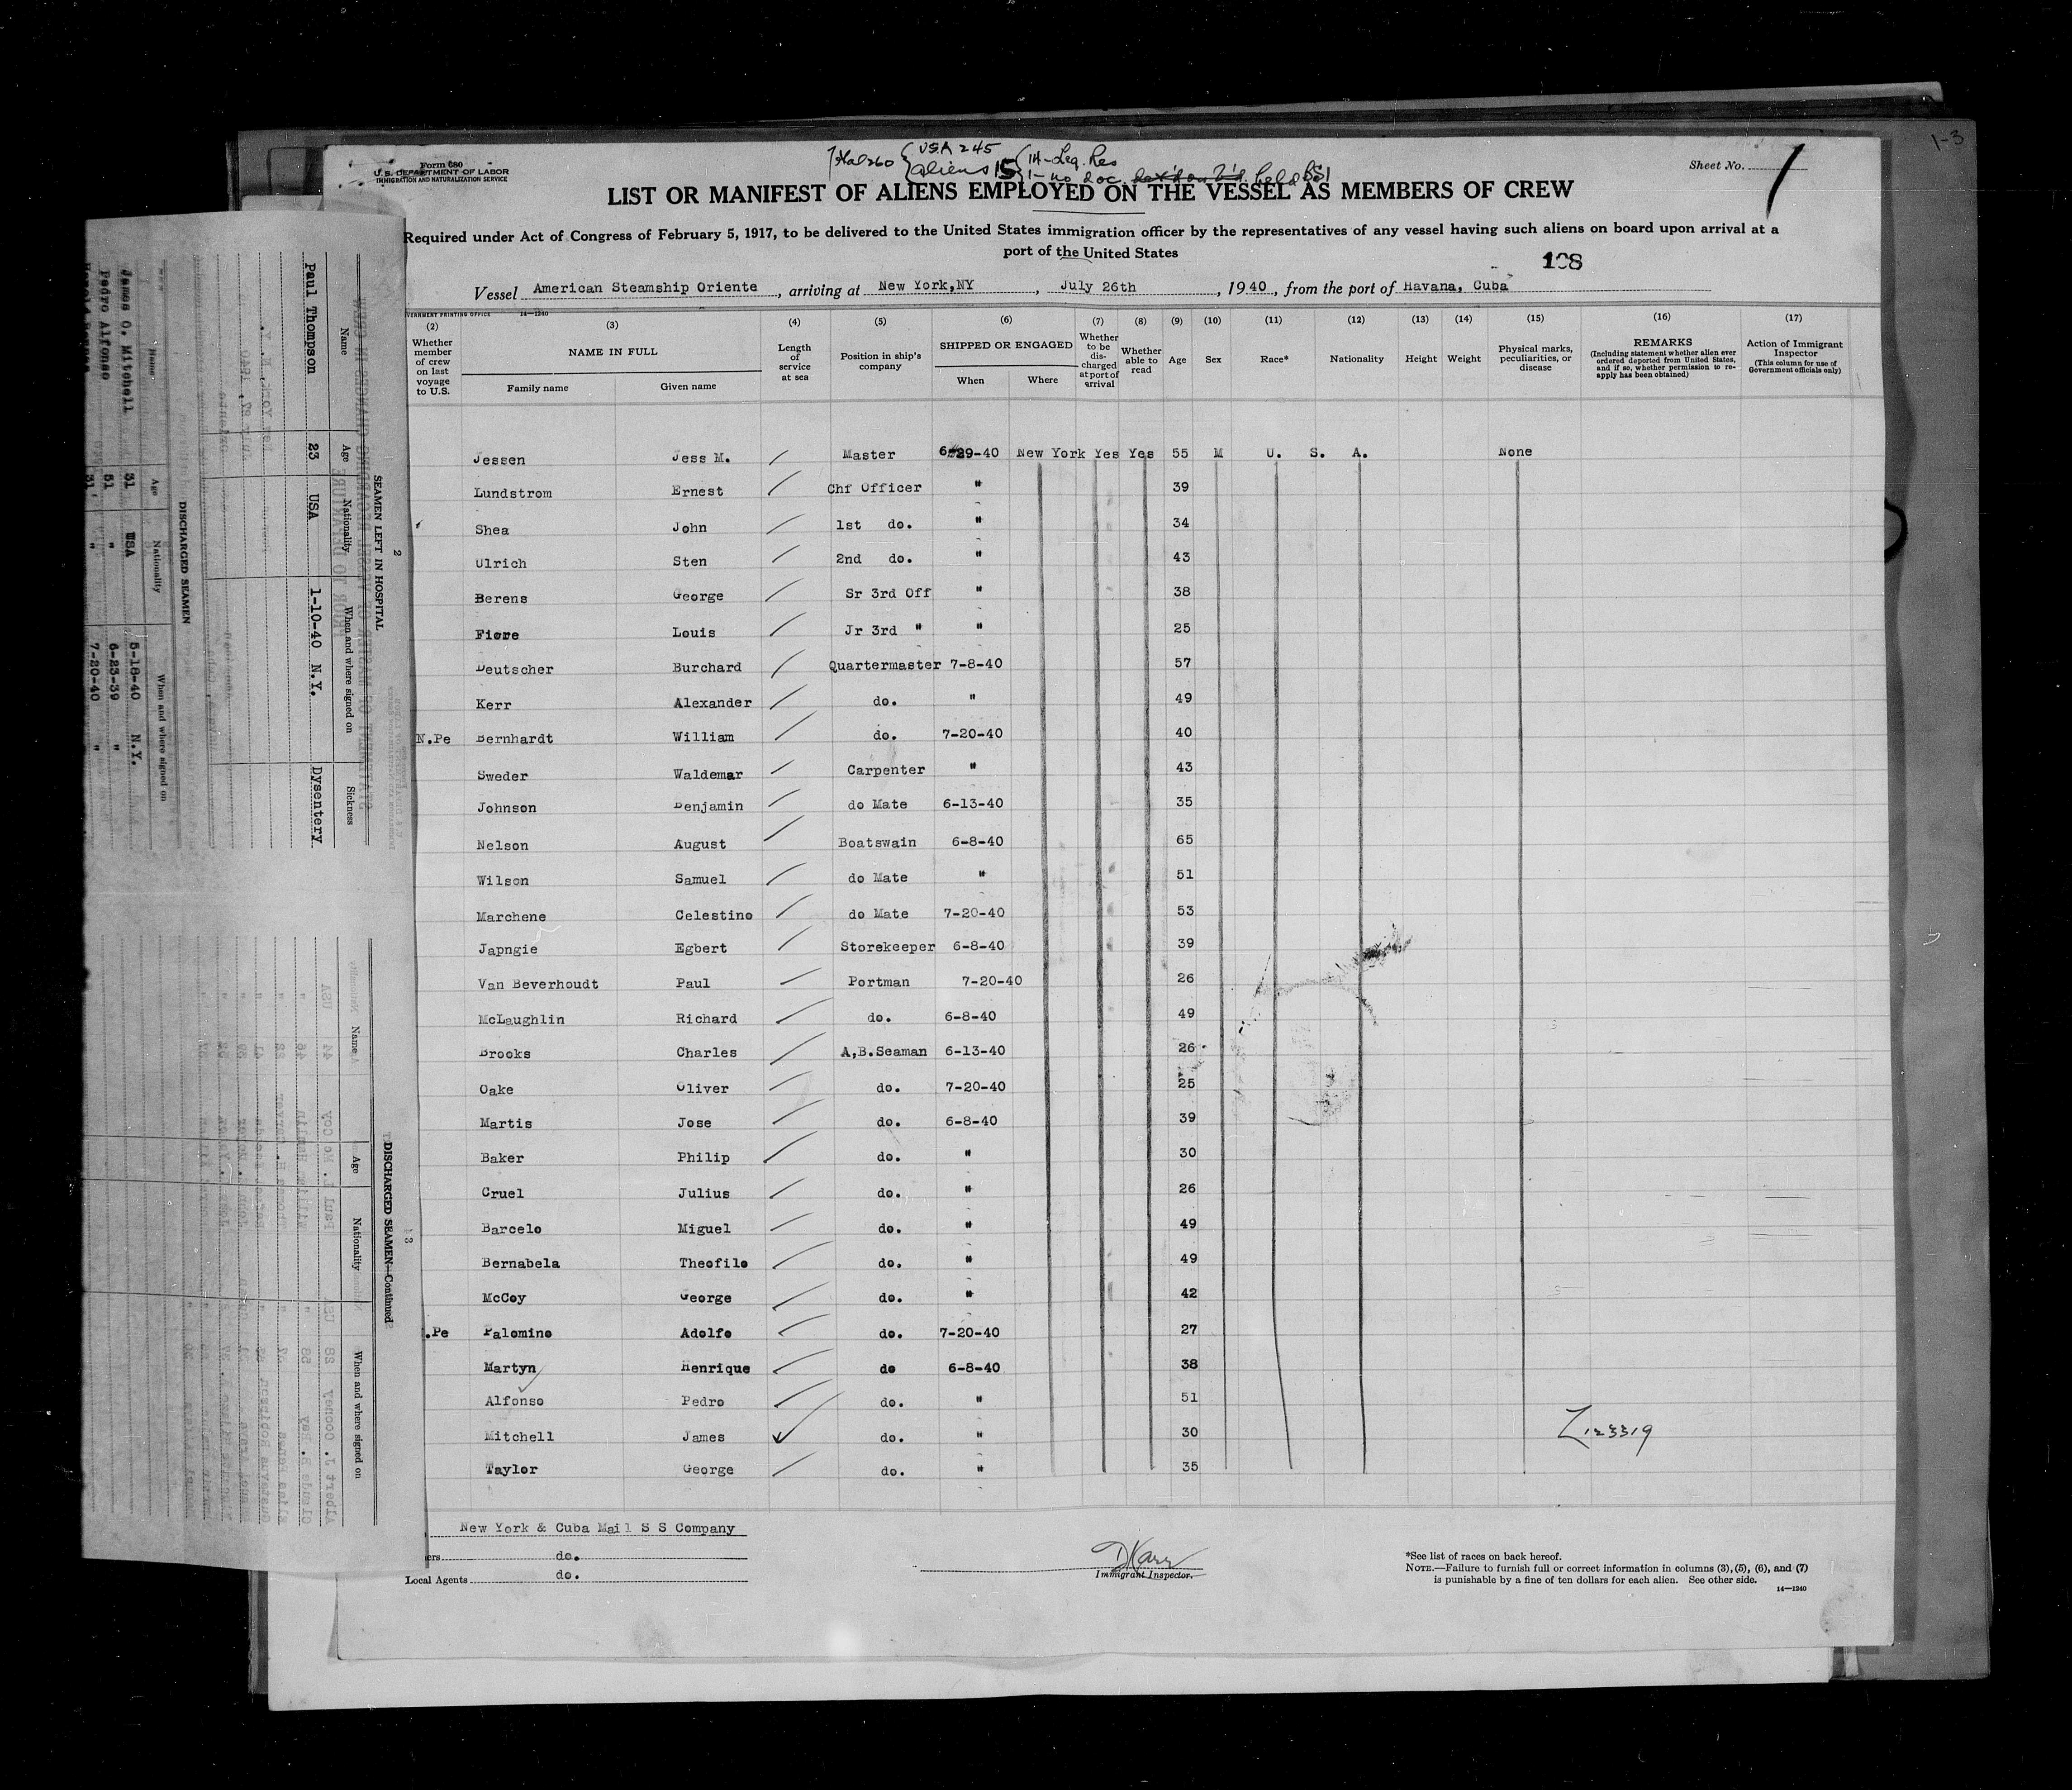 1-3
Total 260 { USA 245
aliens 15 { 14-Leg. Res
1-no doc. held 851
Form 680
U.S. DEPARTMENT OF LABOR
IMMIGRATION AND NATURALIZATION SERVICE
Sheet No. 1
LIST OR MANIFEST OF ALIENS EMPLOYED ON THE VESSEL AS MEMBERS OF CREW
Required under Act of Congress of February 5, 1917, to be delivered to the United States immigration officer by the representatives of any vessel having such aliens on board upon arrival at a
port of the United States
108
Vessel American Steamship Oriente, arriving at New York,NY, July 26th, 1940, from the port of Havana, Cuba
14-1240
(2) (3) (4) (5) (6) (7) (8) (9) (10) (11) (12) (13) (14) (15) (16) (17)
Whether member of crew on last voyage to U.S.
NAME IN FULL
Family name Given name
Length of service at sea
Position in ship's company
SHIPPED OR ENGAGED
When Where
Whether to be discharged at port of arrival
Whether able to read
Age
Sex
Race*
Nationality
Height
Weight
Physical marks, peculiarities, or disease
REMARKS
(Including statement whether alien ever ordered deported from United States, and if so, whether permission to reapply has been obtained)
Action of Immigrant Inspector
(This column for use of Government officials only)
Jessen Jess M. Master 6-29-40 New York Yes Yes 55 M U. S. A. None
Lundstrom Ernest Chf Officer " 39
Shea John 1st do. " 34
Ulrich Sten 2nd do. " 43
Berens George Sr 3rd Off " 38
Fiore Louis Jr 3rd " " 25
Deutscher Burchard Quartermaster 7-8-40 57
Kerr Alexander do. " 49
N.Pe Bernhardt William do. 7-20-40 40
Sweder Waldemar Carpenter " 43
Johnson Benjamin do Mate 6-13-40 35
Nelson August Boatswain 6-8-40 65
Wilson Samuel do Mate " 51
Marchene Celestino do Mate 7-20-40 53
Japngie Egbert Storekeeper 6-8-40 39
Van Beverhoudt Paul Portman 7-20-40 26
McLaughlin Richard do. 6-8-40 49
Brooks Charles A,B.Seaman 6-13-40 26
Oake Oliver do. 7-20-40 25
Martis Jose do. 6-8-40 39
Baker Philip do. " 30
Cruel Julius do. " 26
Barcelo Miguel do. " 49
Bernabela Theofilo do. " 49
McCoy George do. " 42
.Pe Palomino Adolfo do. 7-20-40 27
Martyn Henrique do 6-8-40 38
Alfonso Pedro do. " 51
Mitchell James do. " 30 Z123319
Taylor George do. " 35
New York & Cuba Mail S S Company
ers do.
Local Agents do.
Immigrant Inspector.
*See list of races on back hereof.
NOTE.—Failure to furnish full or correct information in columns (3), (5), (6), and (7)
is punishable by a fine of ten dollars for each alien. See other side.
14—1240
2
SEAMEN LEFT IN HOSPITAL
Name Age Nationality When and where signed on Sickness
Paul Thompson 23 USA 1-10-40 N.Y. Dysentery
DISCHARGED SEAMEN
Name Age Nationality When and where signed on
James O. Mitchell 31 USA 5-18-40 N.Y.
Pedro Alfonso 51 " 6-23-39 "
31 " 7-20-40 "
3
DISCHARGED SEAMEN—Continued
Name Age Nationality When and where signed on